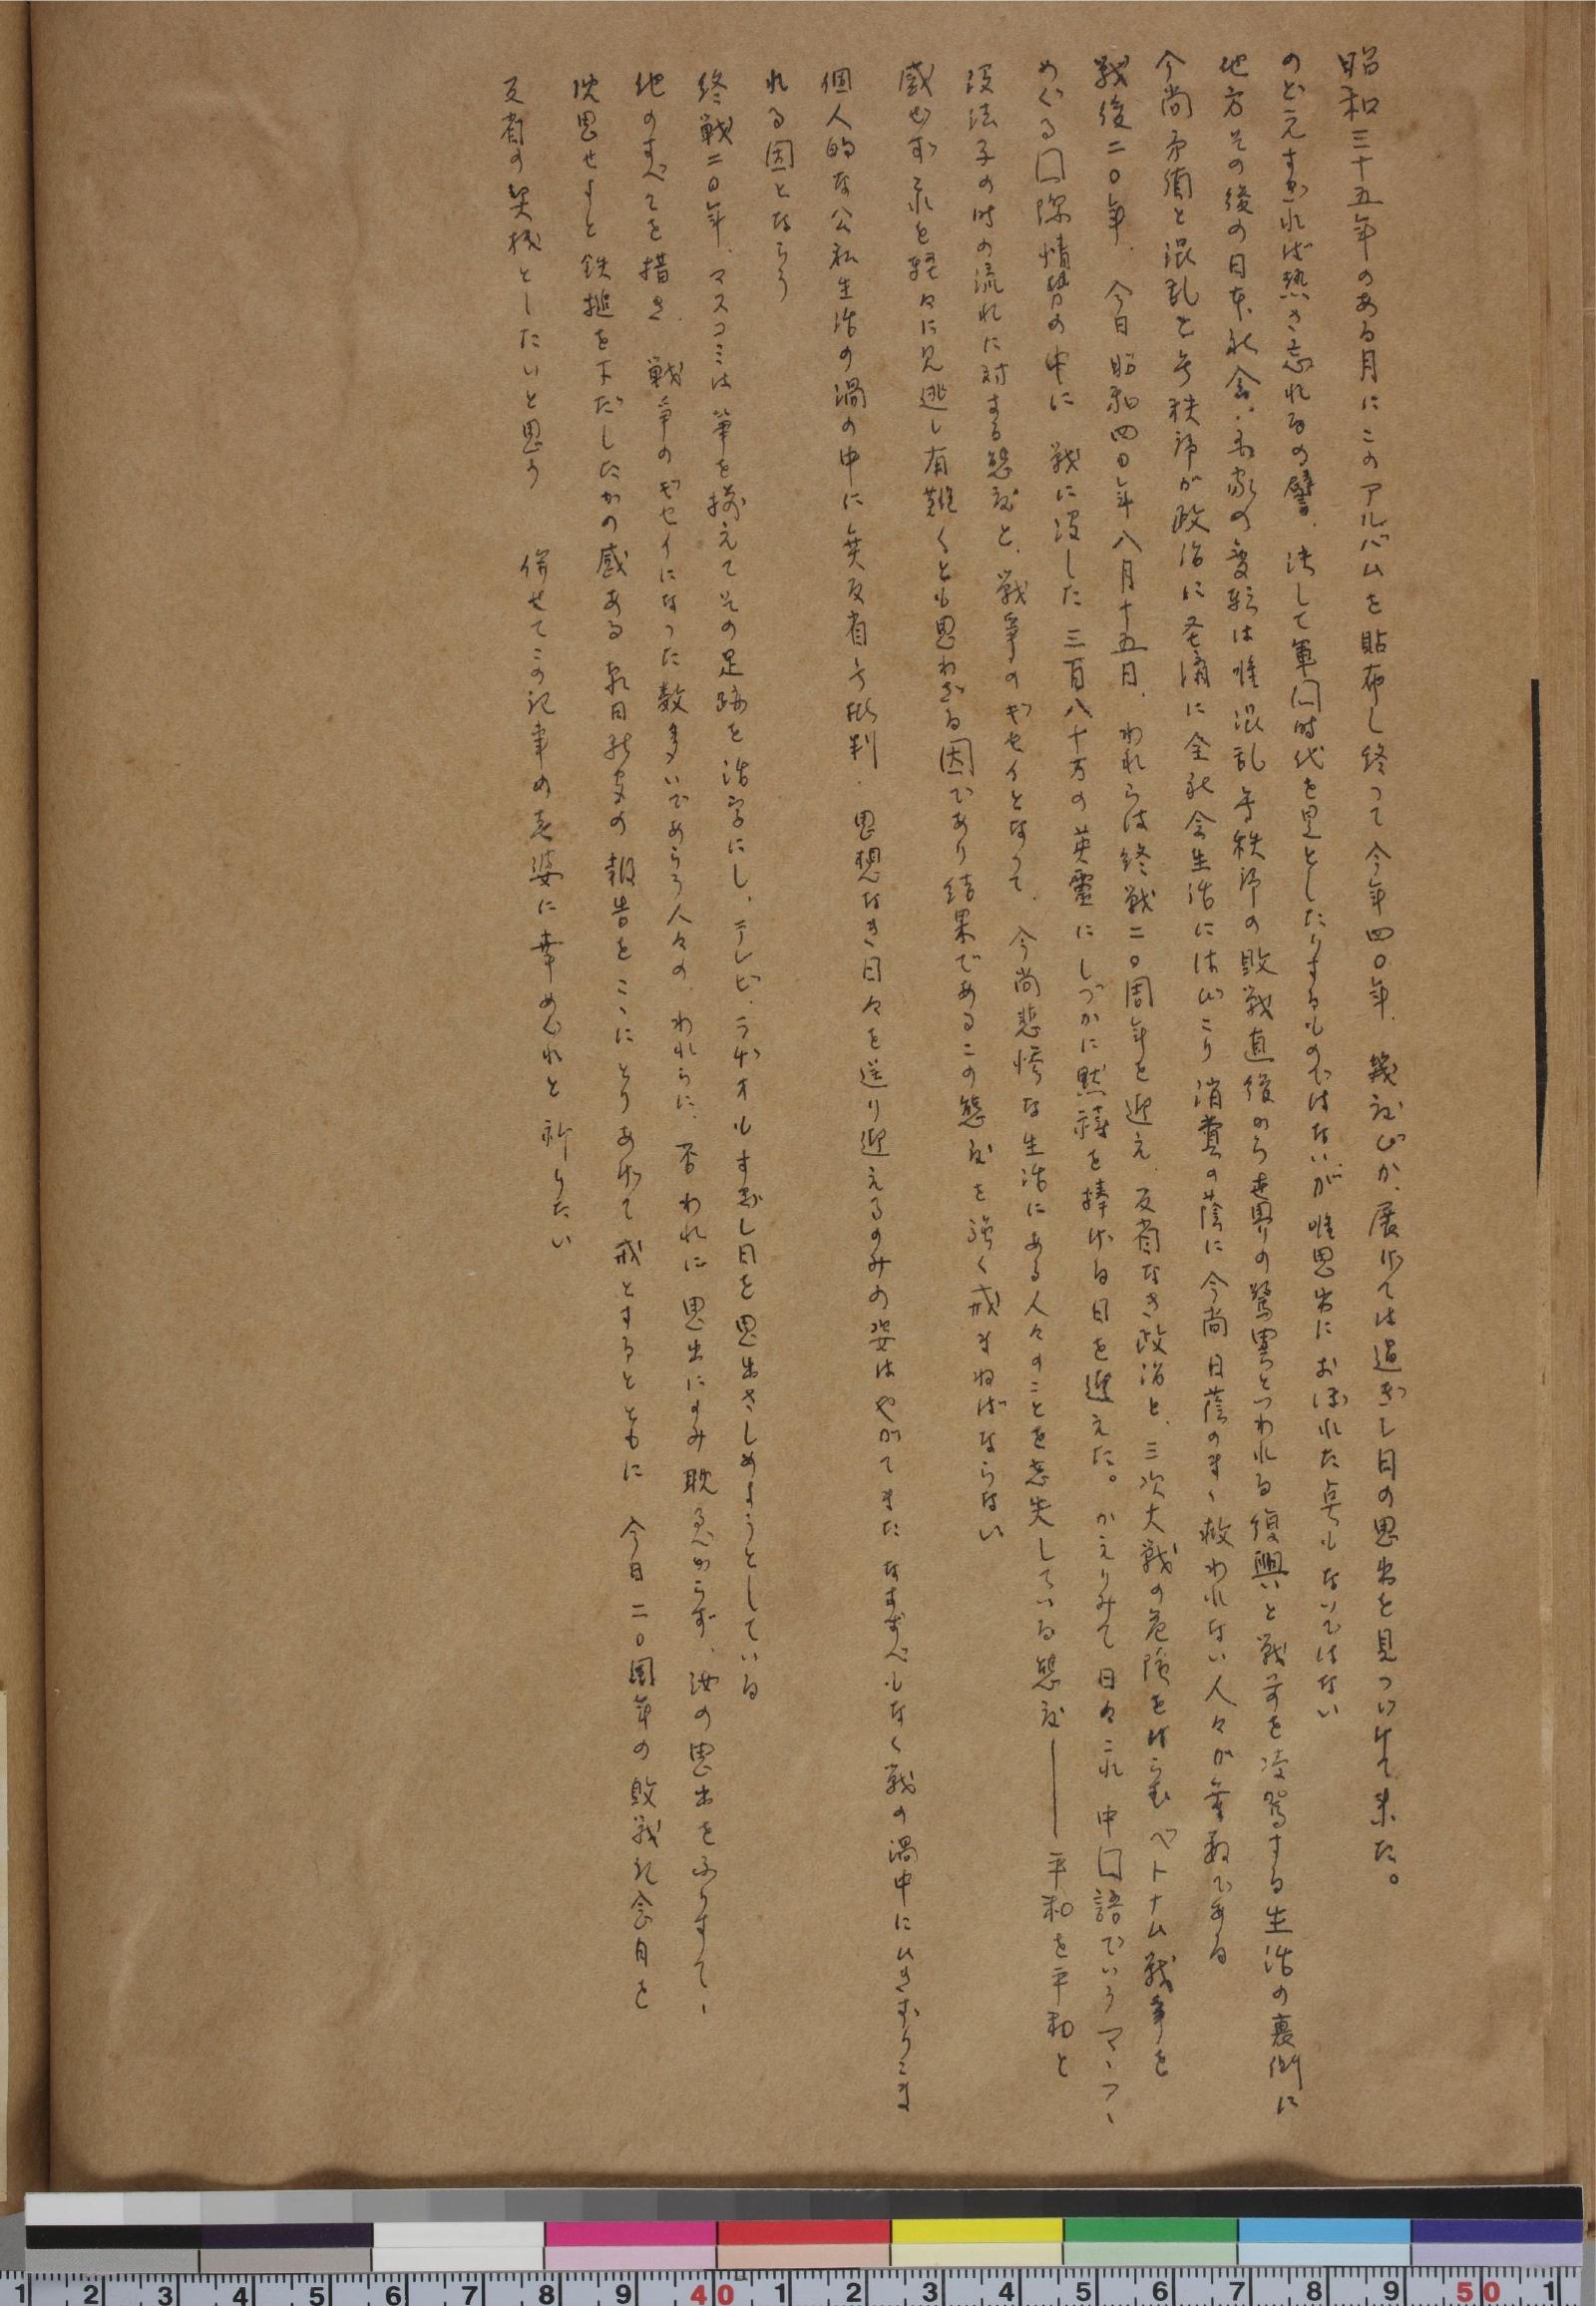 昭和三十五年のある月にこのアルバムを貼布し終って今年四〇年、幾度びか、展げては過ぎし日の思出を見つけて来た。
のど元すぎれば熱さ忘れるの譬、決して軍閥時代を是としたりするものではないが唯思出におぼれた点もないではない
地方その後の日本、社会、国家の変転は唯混乱無秩序の敗戦直後から世界の驚異とつわれる復興と戦前を凌駕する生活の裏側に
今尚矛盾と混乱と無秩序が政治に 全社会生活にはびこり消費の蔭に今尚日蔭のまゝ救われない人々が無数である
戦後二〇年、今日昭和四〇年八月十五日、われらは終戦二〇周年を迎え、反省なき政治と、三次大戦の危険をはらむベトナム戦争を
めぐる国際情勢の中に 戦に没した三百八十万の英霊にしづかに黙祷を捧げる日を迎えた。かえりみて日々これ中国語でいうマーフー
没法子の時の流れに対する態度と、戦争のギセイとなって、今尚悲惨な生活にある人々のことを忘失している態度――平和を平和と
感ぜず 軽々に見逃し有難くとも思わざる因であり結果であるこの態度を強く戒まねばならない
個人的な公私生活の渦の中に無反省無批判、思想なき日々を送り迎えるのみの姿はやがてまたなすすべもなく戦の渦中にひきずりこま
れる因となろう
終戦二〇年、マスコミは筆を揃えてその足跡を活字にし、テレビ、ラヂオもすぎし日を思出さしめようとしている
他のすべてを措き、戦争のギセイになった数多いであろう人々の、われらに、否われに思出にのみ耽るべからず、汝の思出をふりすてゝ
沈思せよと鉄槌を下だしたかの感ある 報告をこゝにとりあげて戒とするとともに 今日二〇周年の敗戦記念日を
反省の契機としたいと思う 併せてこの記事の老婆に幸あれと祈りたい